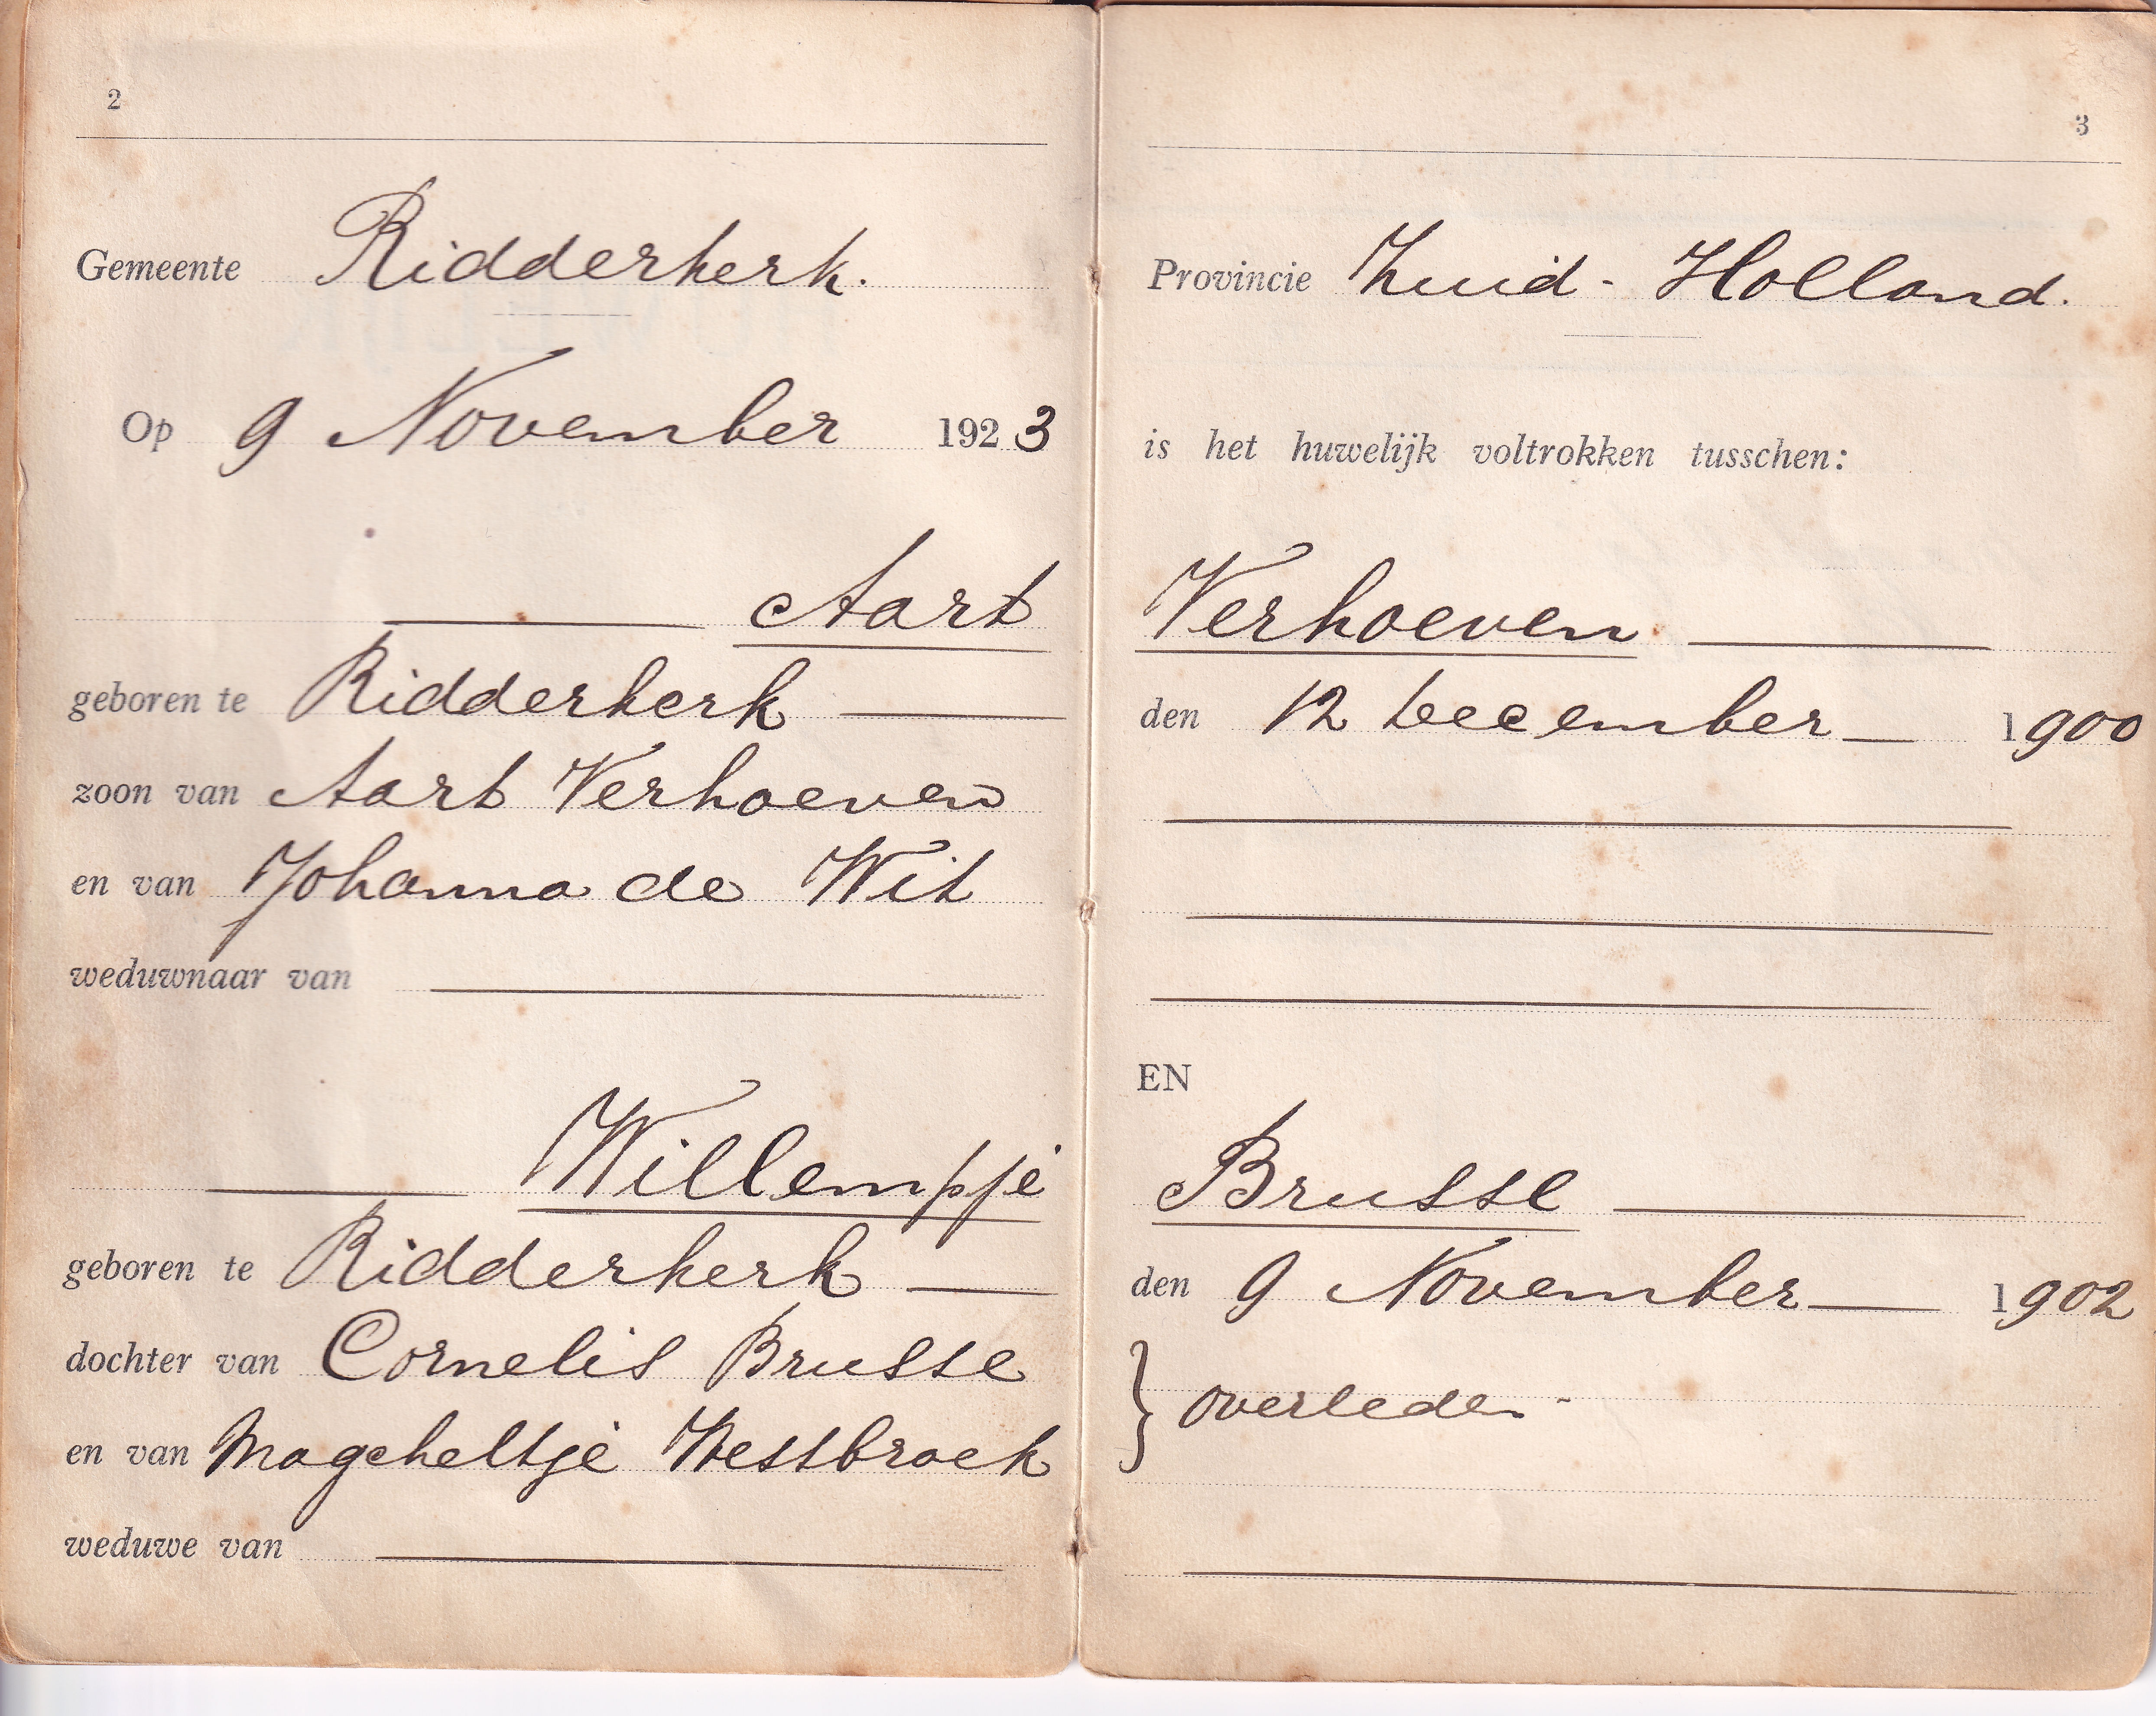 2
Gemeente Ridderkerk.
Op 9 November 1923
Aart
geboren te Ridderkerk
zoon van Aart Verhoeven
en van Johanna de Wit
weduwnaar van
Willempje
geboren te Ridderkerk
dochter van Cornelis Brusse
en van Magcheltje Westbroek
weduwe van
3
Provincie Zuid-Holland.
is het huwelijk voltrokken tusschen:
Verhoeven
den 12 December 1900
EN
Brusse
den 9 November 1902
} overleden